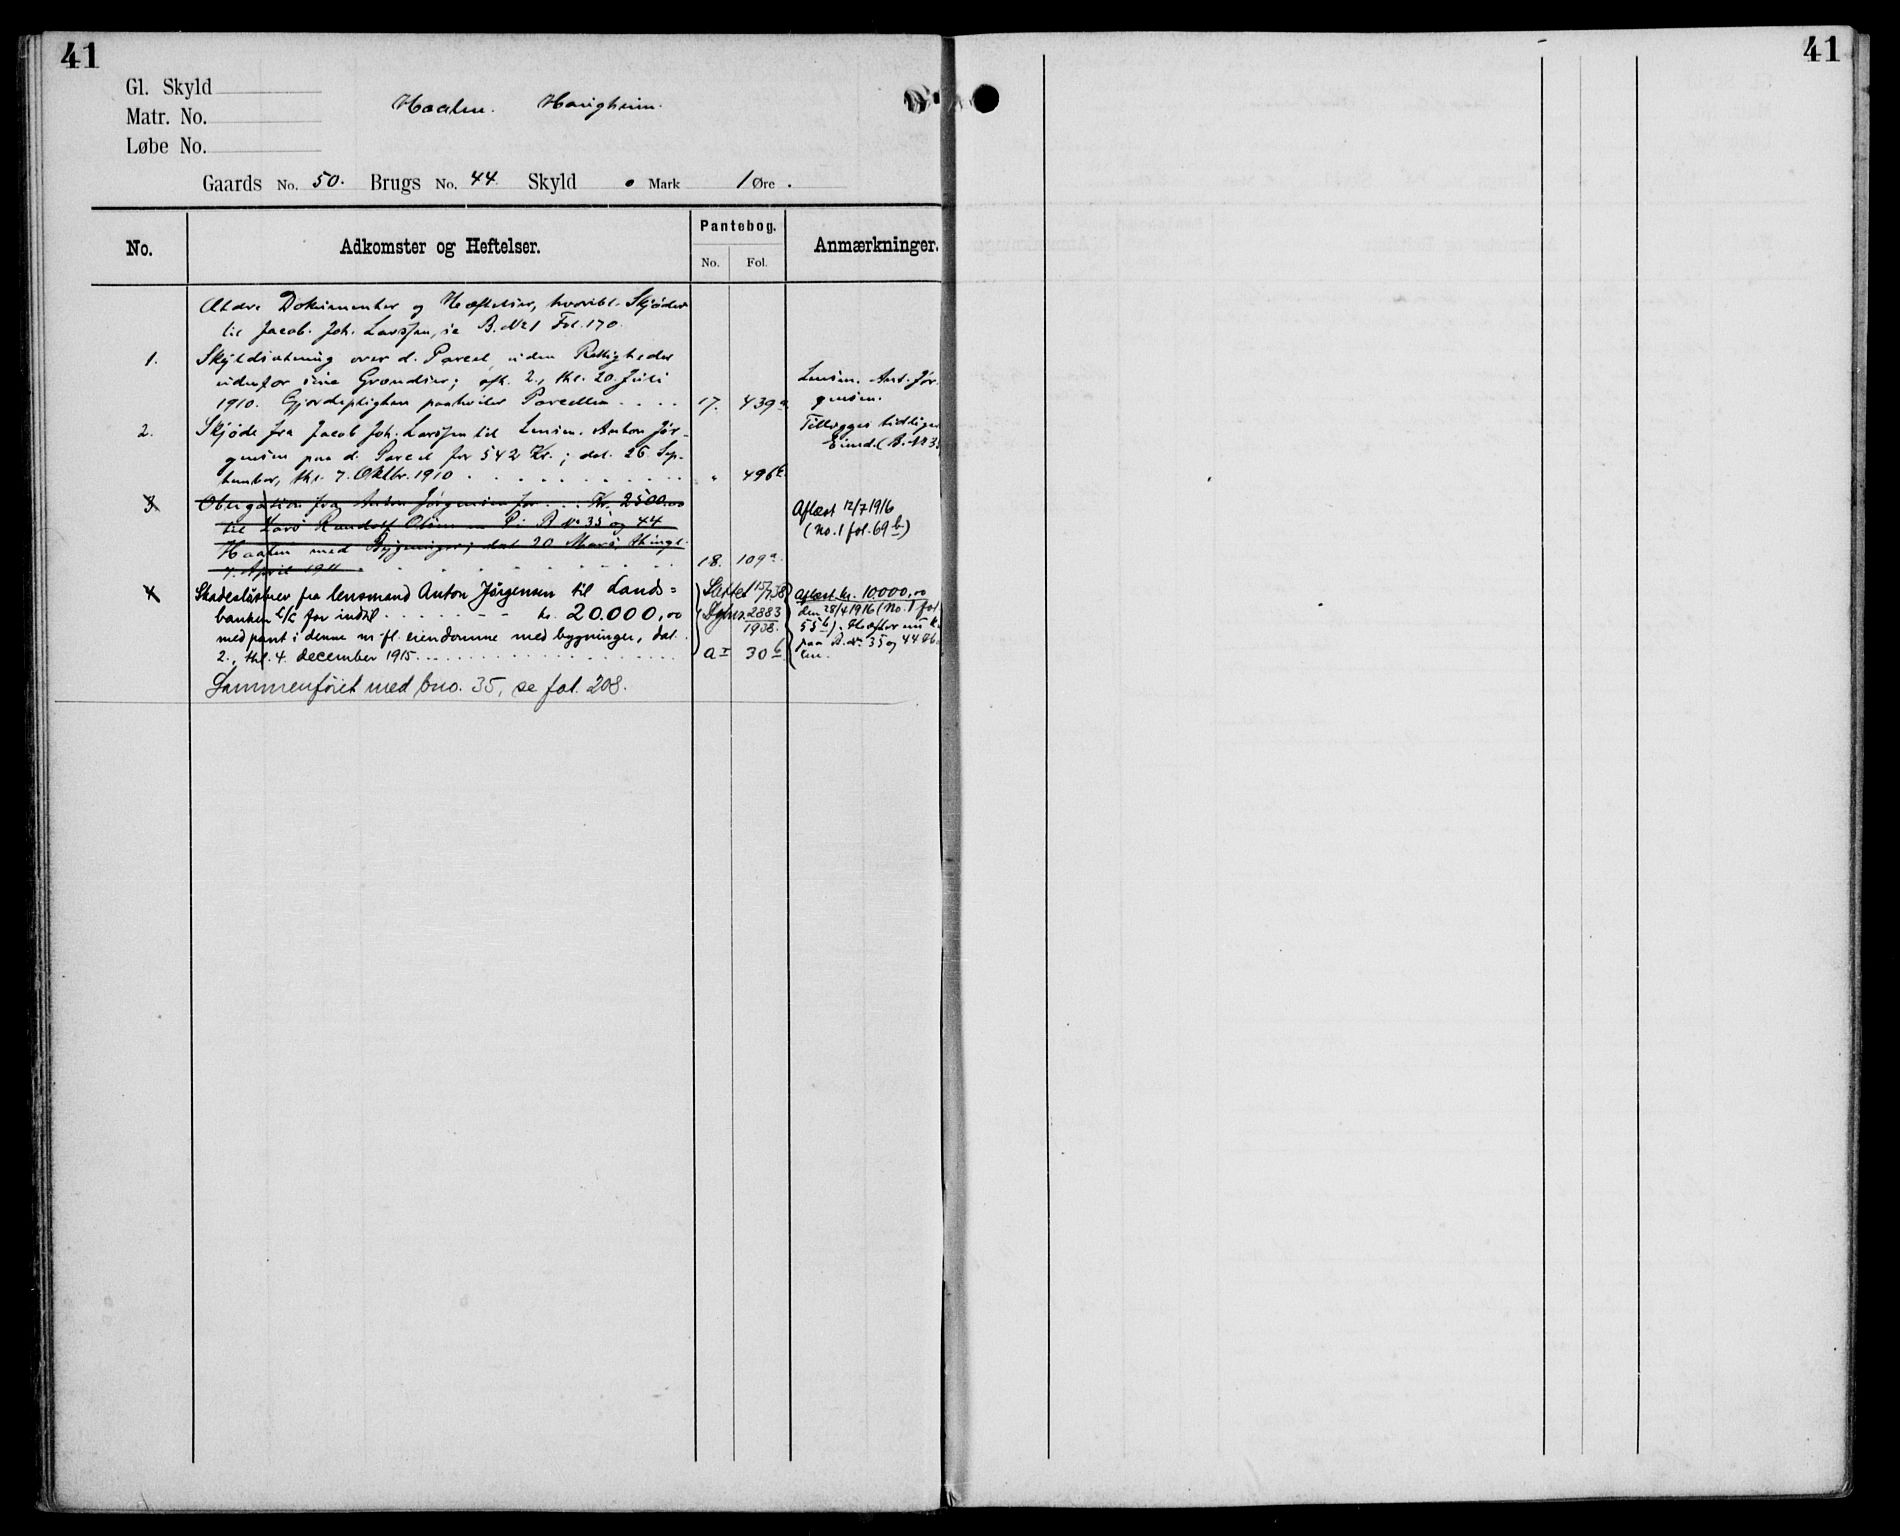 41
41
Gl. Skyld
Matr. No.
Løbe No.
Haalen. Haugheim.
Gaards No. 50. Brugs No. 44. Skyld 0 Mark 1 Øre.
No. Adkomster og Heftelser. Pantebog. Anmærkninger.
No. Fol.
Ældre Dokumenter og Hæftelser, hvoribl. Skjøder
til Jacob Joh. Larssen, se B. No 1 Fol. 170.
1. Skyldsætning over d. Parcel, uden Rettigheder
udenfor sine Grændser; afh. 2., thl. 20. Juli
1910. Gjerdepligten paahviler Parcellen .... 17. 439a.
Lensm. Ant. Jør-
gensen.
2. Skjøde fra Jacob Joh. Larssen til Lensm. Anton Jør-
gensen paa d. Parcel for 542 Kr.; dat. 26. Sep-
tember, thl. 7. Oktbr. 1910 . . . . . . . . " 496b.
Tillægges tidligere
Eiend. (B. No 35
3. Obligation fra Anton Jørgensen for .... Kr. 2500.00
til Lars Randolf Olsen P. i B No 35 og 44
Haalen med Bygninger; dat 20 Mars, thingl.
7. April 1911 . . . . . . . . . 18. 109a.
Aflæst 12/7 1916
(No. 1 fol. 69b)
4. Skadesløsbrev fra lensmand Anton Jørgensen til Lands=
banken A/S for indtil . . . . . - - kr. 20.000,00
med pant i denne m. fl. eiendomme med bygninger, dat.
2., thl. 4. december 1915 . . . . . . . . . . a I 30b.
Slettet 15/7-38
Dgbnr. 2883
1938.
Aflæst kr. 10.000,00
den 28/4 1916 (No. 1 fol.
55b). Hefter nu
paa B. No. 35 og 44
Sammenføiet med bno. 35, se fol. 208.